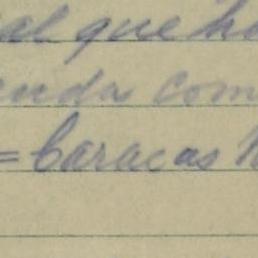 al que ha
enda com
=baracas h